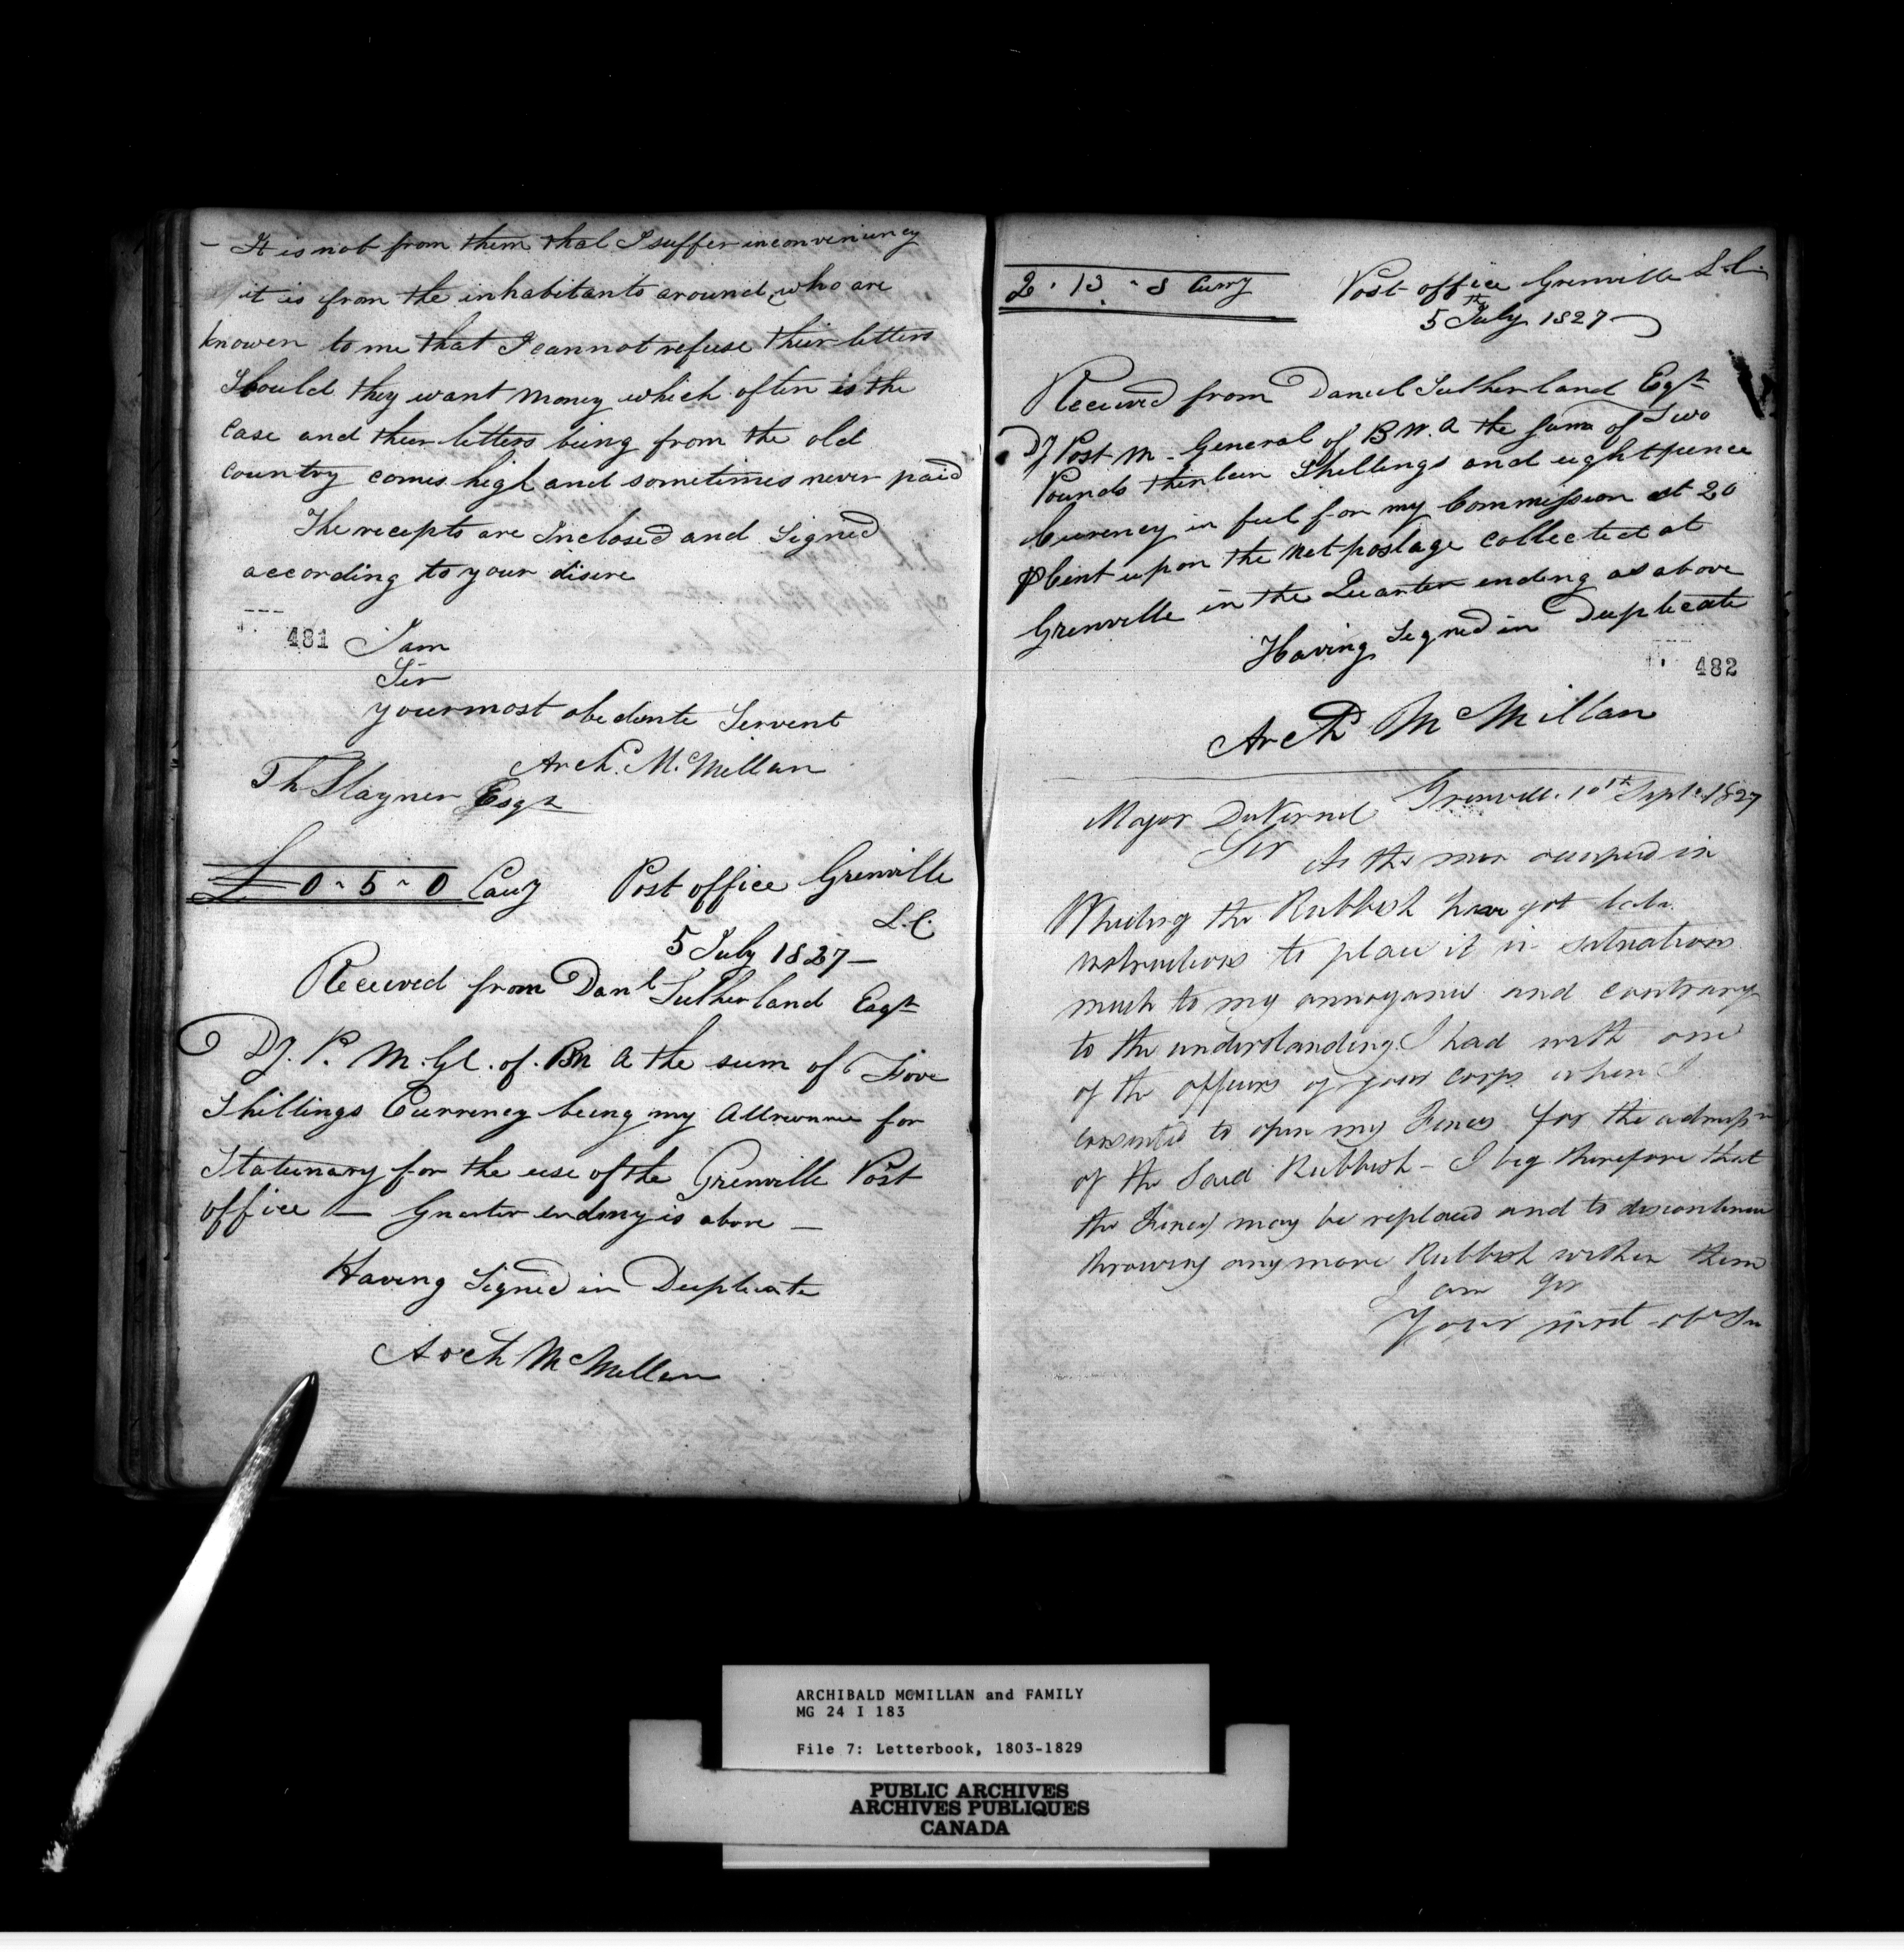 - It is not from them that I suffer inconveniency
it is from the inhabitants around, who are
knowen to me that I cannot refuse their letters
Should they want money which often is the
Case and their letters being from the old
Country comes high and sometimes never paid
The recepts are Inclosed and Signed
according to your disire
481
I am
Sir
your most obedente Servent
Arch. McMillan
Th Stayner Esqr
£ 0 - 5 - 0 Cuy
Post office Grenville
L.C.
5 July 1827 -
Received from Danl Sutherland Esqr
Dy. P. M. Gl. of. BN A the sum of Five
Shillings Currency being my Allowance for
Stationary for the use of the Grenville Post
office - Quarter ending is above -
Having Signed in Duplicate
Arch McMillan
2 . 13 - 8 Curry
Post office Grenville L.C.
5th July 1827
Received from Daniel Sutherland Esqr
Dy Post M. General of B N. A the sum of Two
Pounds thirteen Shillings and eight pence
Currency in full for my Commission at 20
P Cent upon the net postage collected at
Grenville in the Quarter ending as above
Having Signed in Duplicate
482
Arch McMillan
Grenville 10th Septr. 1827
Major DuVernet
Sir As the men occupied in
Wheeling the Rubbish have got late
instructions to place it in situations
much to my annoyance and contrary
to the understanding I had with one
of the officers of your corps when I
consented to open my Fences for the admissn
of the Said Rubbish - I beg therefore that
the Fences may be replaced and to discontinue
throwing any more Rubbish within them
I am Sir
Your most obt Sr
ARCHIBALD MCMILLAN and FAMILY
MG 24 I 183
File 7: Letterbook, 1803-1829
PUBLIC ARCHIVES
ARCHIVES PUBLIQUES
CANADA